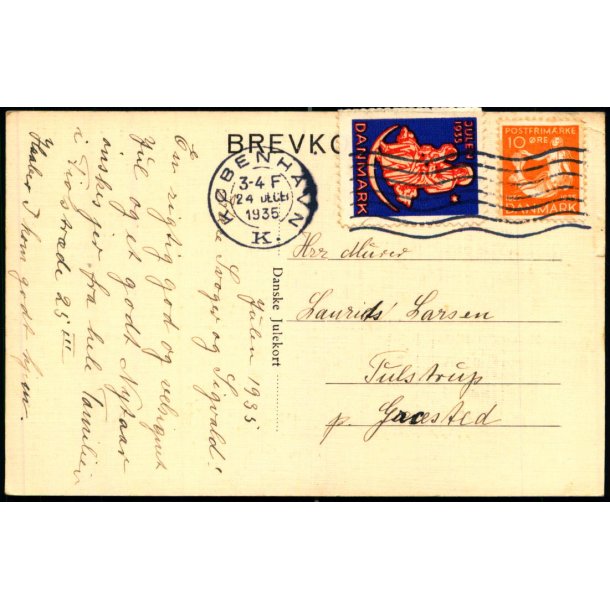 BREVKO
JULEN
1935
DANMARK
POSTFRIMÆRKE
10 ØRE
DANMARK
KØBENHAVN
3-4 F
24 DEC
1935
K.
Danske Julekort
Julen 1935
Svoger og Sigvald!
En rigtig god og velsignet
Jul og et godt Nytaar
ønskes jer fra hele Familien
i Fiolstræde 25 III
Haaber I kom godt hjem.
Herr Murer
Laurids Larsen
Tulstrup
p. Græsted